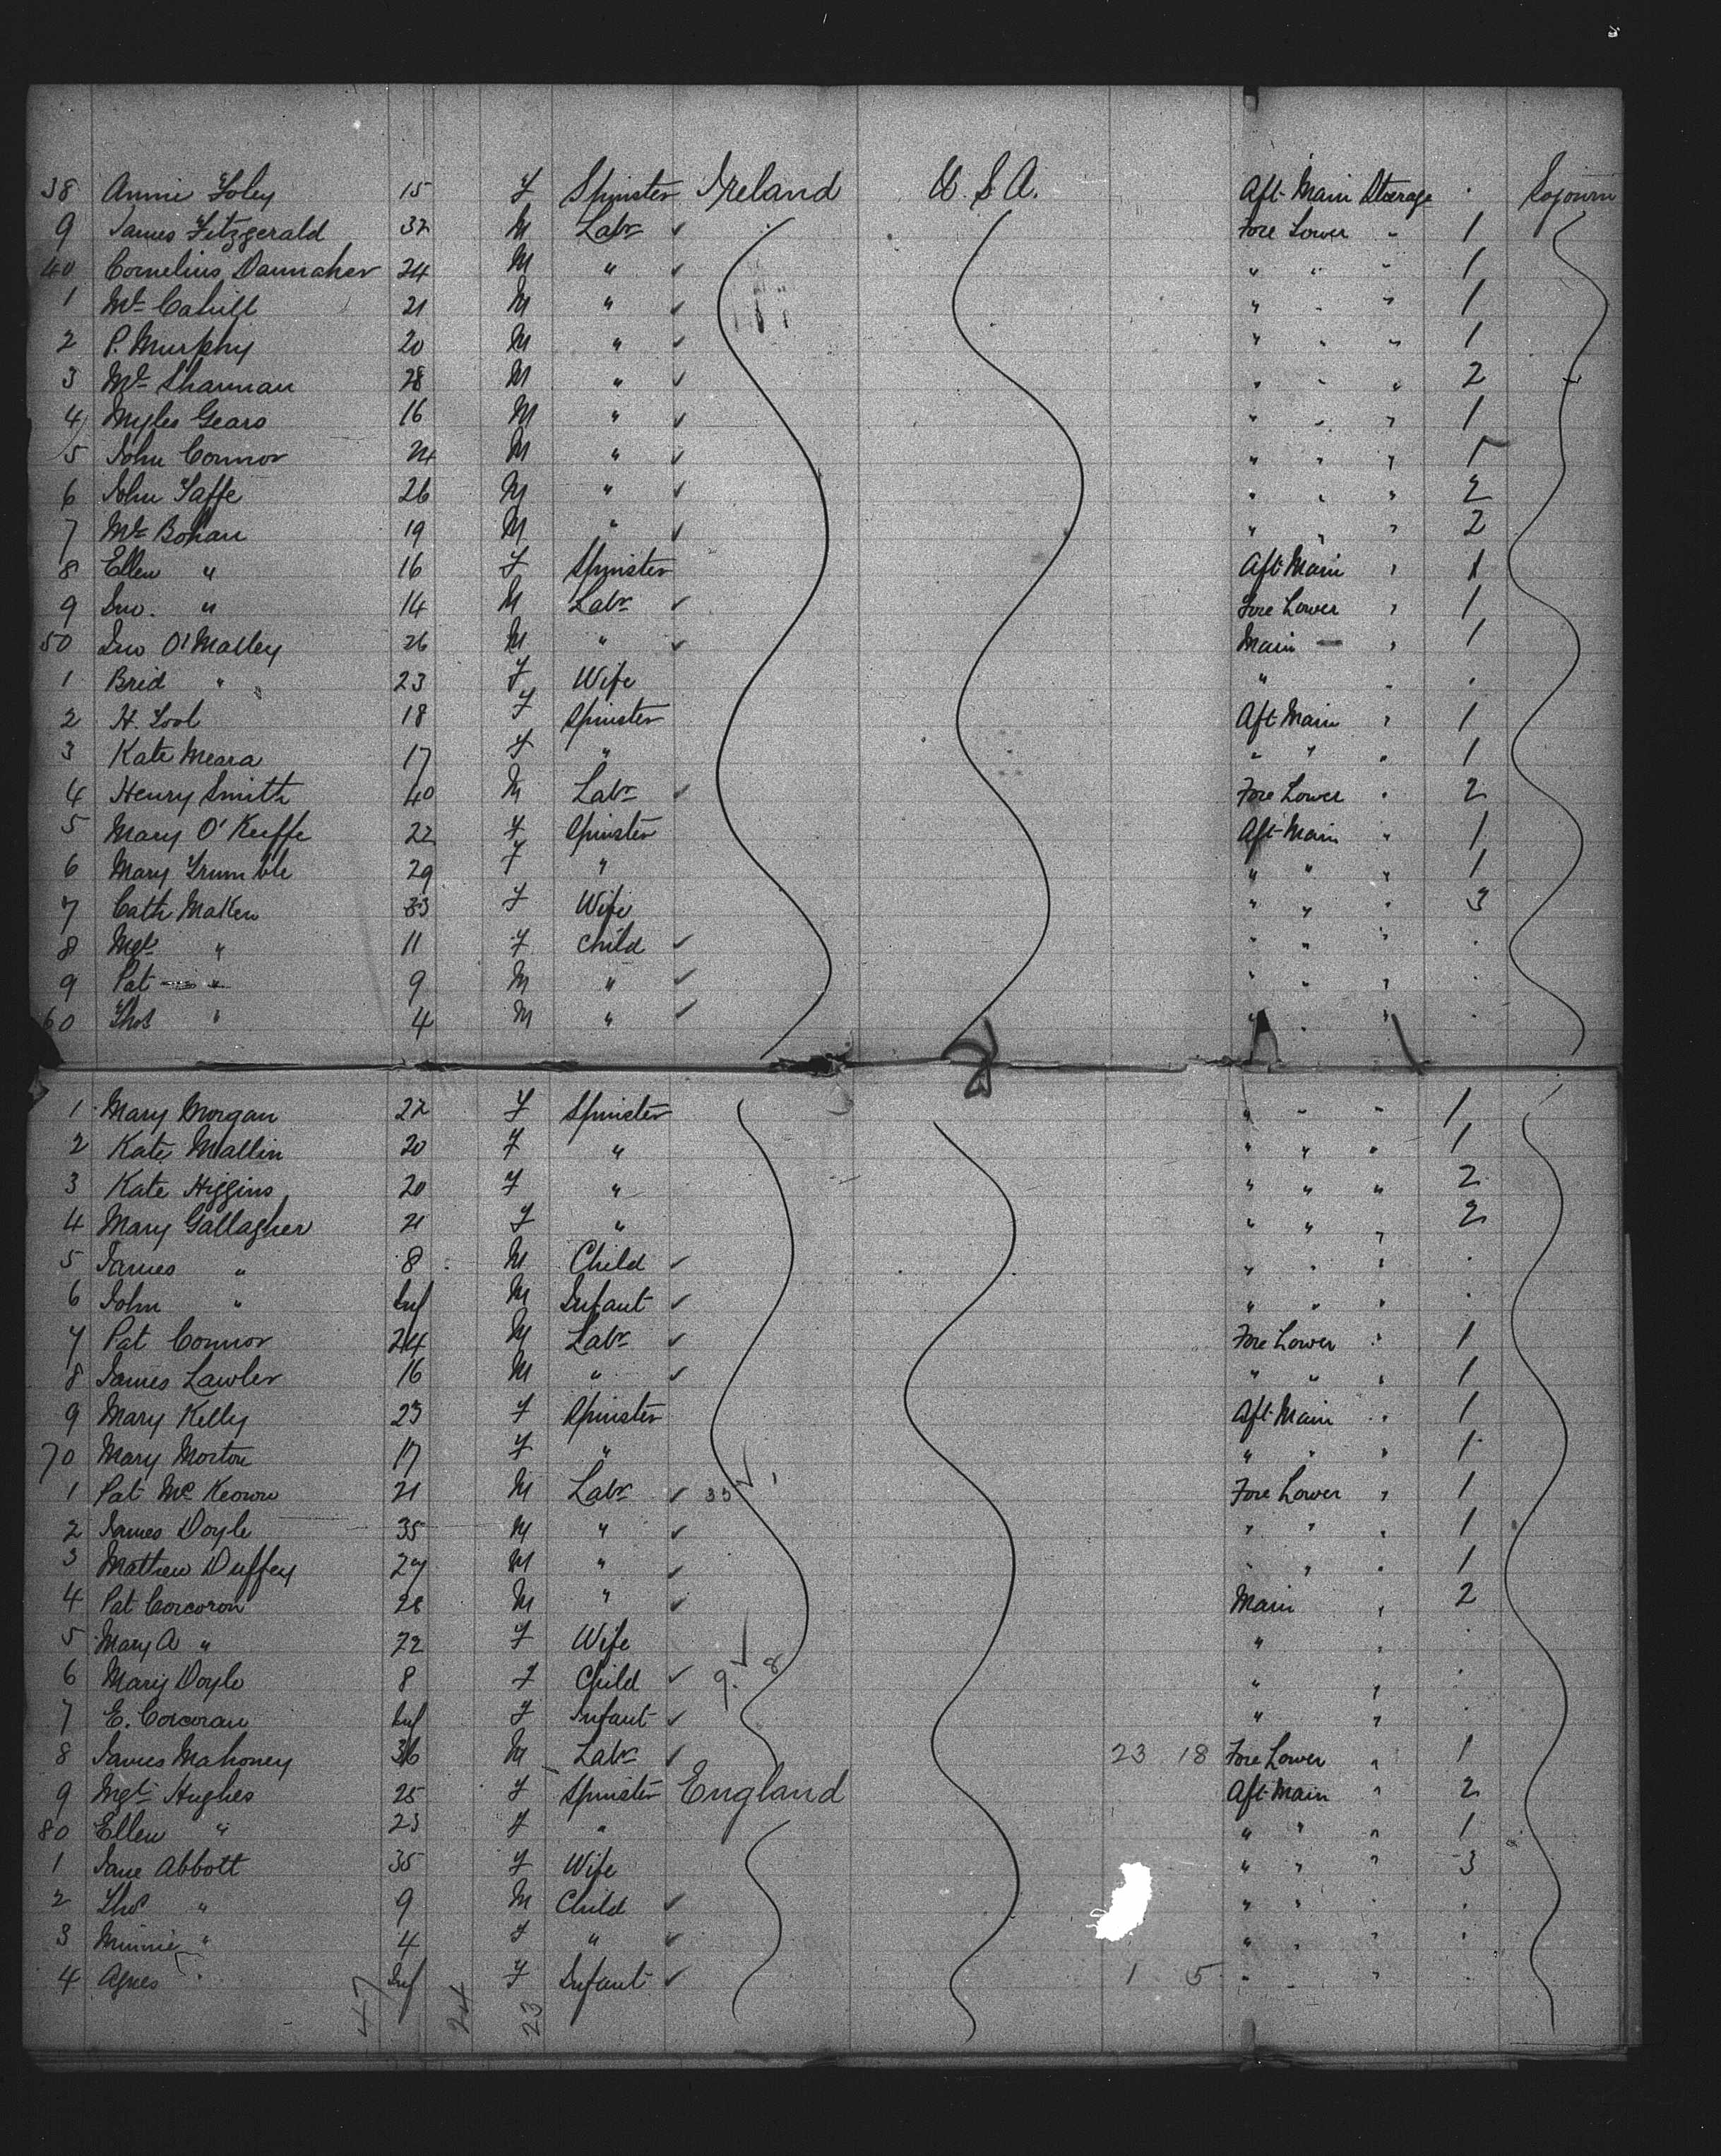 38 Annie Foley 15 F Spinster Ireland U.S.A. Aft Main Steerage . Sojourn
9 James Fitzgerald 32 M Labr ✓ Fore Lower " 1
40 Cornelius Dannaher 24 M " ✓ " " " 1
1 Ml Cahill 21 M " ✓ " " " 1
2 P. Murphy 20 M " ✓ " " " 1
3 Ml Shannan 28 M " ✓ " " " 2
4 Myles Gears 16 M " ✓ " " " 1
5 John Connor 24 M " ✓ " " " 1
6 John Taffe 26 M " ✓ " " " 2
7 Ml Bohan 19 M " ✓ " " " 2
8 Ellen " 16 F Spinster Aft Main " 1
9 Jno. " 14 M Labr ✓ Fore Lower " 1
50 Jno O'Malley 26 M " ✓ Main — " 1
1 Brid " 23 F Wife " " .
2 H. Tool 18 F Spinster Aft Main " 1
3 Kate Meara 17 F " " " " 1
4 Henry Smith 40 M Labr ✓ Fore Lower " 2
5 Mary O'Keeffe 22 F Spinster Aft Main " 1
6 Mary Trumble 29 F " " " " 1
7 Cath Maken 33 F Wife " " " 3
8 Mgt " 11 F Child ✓ " " " .
9 Pat " 9 M " ✓ " " " .
60 Thos " 4 M " ✓ " " " .
1 Mary Morgan 22 F Spinster " " " 1
2 Kate Mallin 20 F " " " " 1
3 Kate Higgins 20 F " " " " 2
4 Mary Gallagher 21 F " " " " 2
5 James " 8 M Child ✓ " " " .
6 John " Inf M Infant ✓ " " " .
7 Pat Connor 24 M Labr ✓ Fore Lower " 1
8 James Lawler 16 M " ✓ " " " 1
9 Mary Kelly 23 F Spinster Aft Main " 1
70 Mary Morton 17 F " " " " 1
1 Pat McKeown 21 M Labr ✓ 35 ✓ Fore Lower " 1
2 James Doyle 35 M " ✓ " " " 1
3 Mathew Duffey 27 M " ✓ " " " 1
4 Pat Corcoron 28 M " ✓ Main " 2
5 Mary A " 22 F Wife " " .
6 Mary Doyle 8 F Child ✓ 9. 8 " " .
7 E. Corcoran Inf F Infant ✓ " " .
8 James Mahoney 36 M Labr ✓ 23 18 Fore Lower " 1
9 Mgt Hughes 25 F Spinster England Aft Main " 2
80 Ellen " 23 F " " " " 1
1 Jane Abbott 35 F Wife " " " 3
2 Thos " 9 M Child ✓ " " " .
3 Minnie " 4 F " ✓ " " " .
4 Agnes " Inf F Infant ✓ 1 5 " " " .
47 24 23